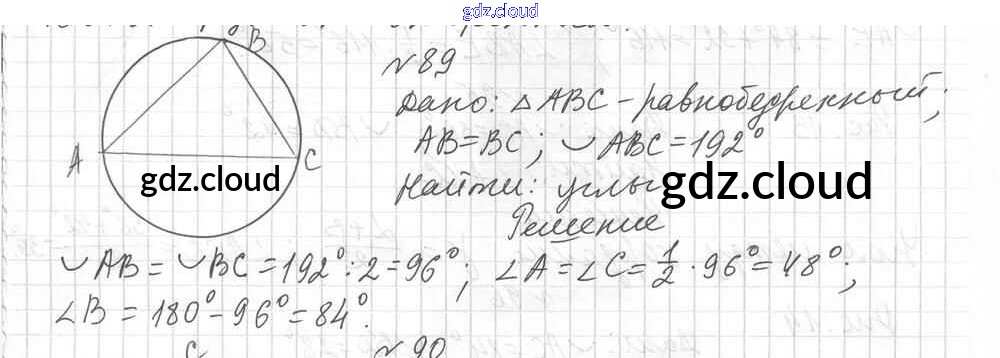 gdz.cloud
B
N 89
Дано: △ ABC - равнобедренный;
AB = BC; ◡ ABC = 192°
A
C
gdz.cloud
Найти: углы
gdz.cloud
Решение
◡ AB = ◡ BC = 192° : 2 = 96°; ∠A = ∠C = 1/2 · 96° = 48°;
∠B = 180° - 96° = 84°.
N 90